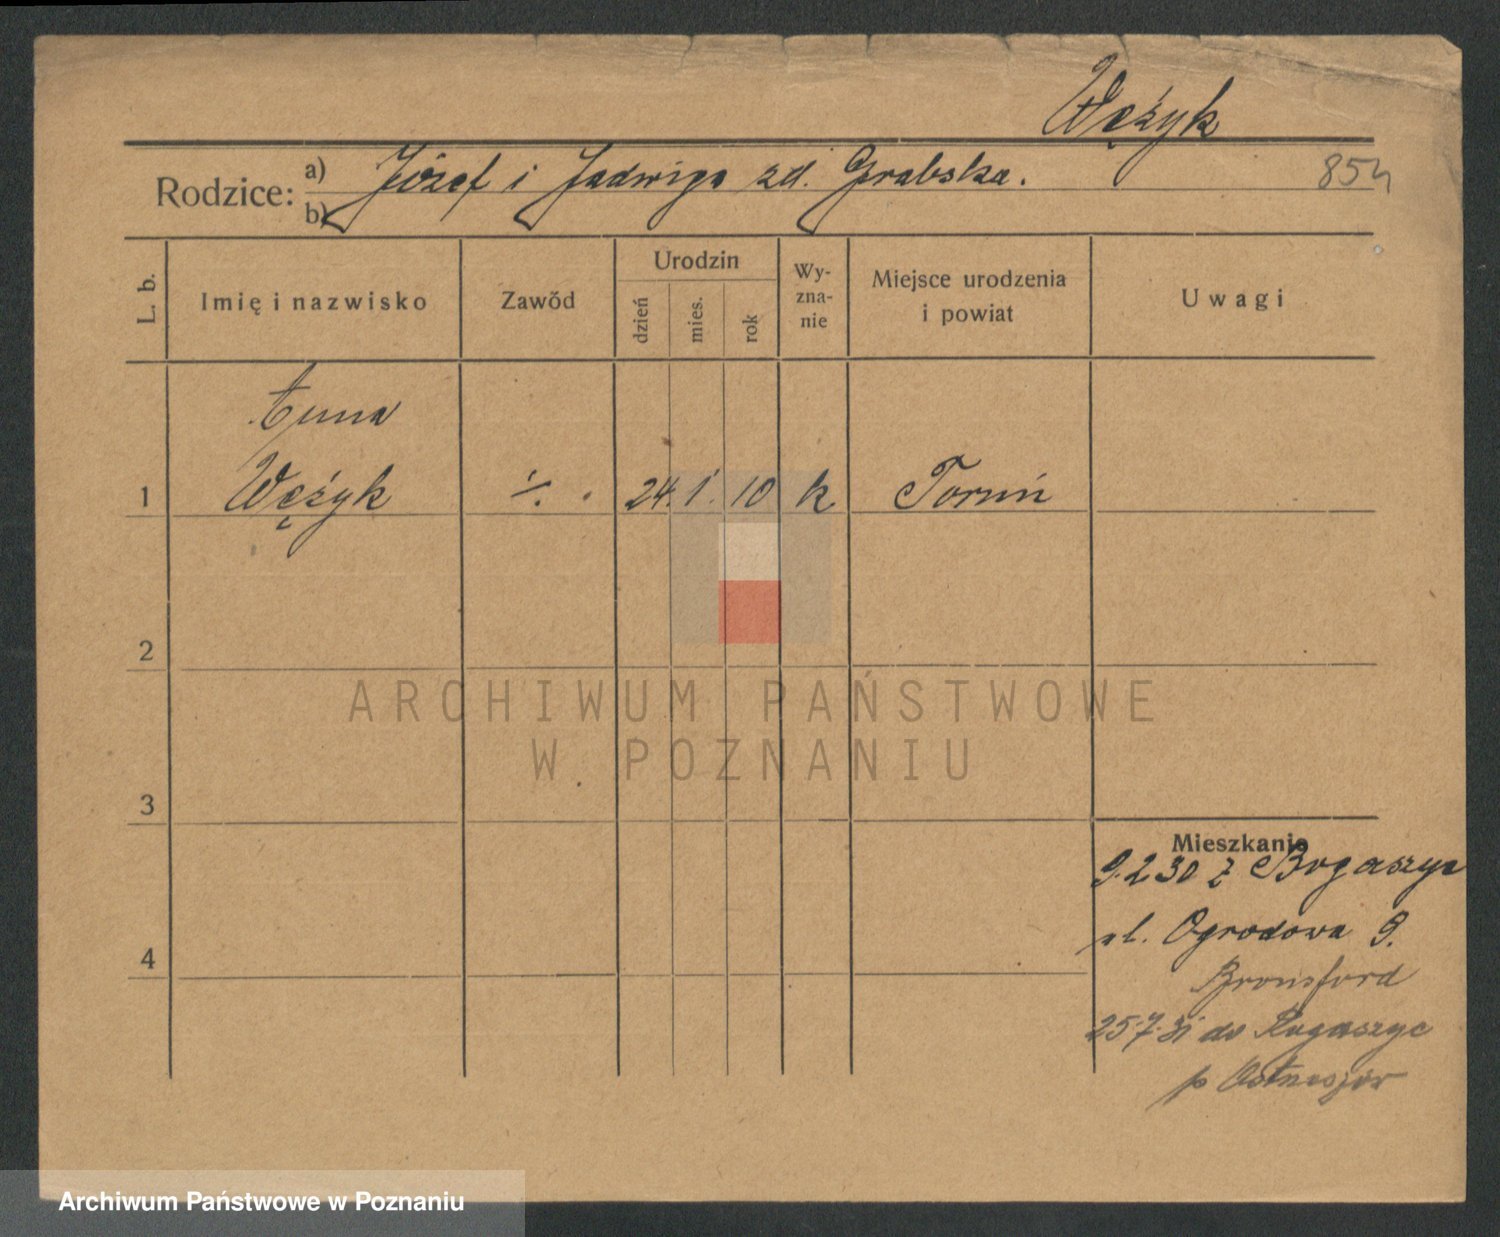 Wężyk
Rodzice: a) Józef i Jadwiga zd. Grabska. 854
b)
L. b. Imię i nazwisko Zawód Urodzin dzień mies. rok Wy-zna-nie Miejsce urodzenia i powiat Uwagi
Anna
1 Wężyk ·/. 24. 1. 10 k Toruń
2
ARCHIWUM PAŃSTWOWE
W POZNANIU
3
Mieszkanie
9.2 30 z Bogaszyc
4 ul. Ogrodowa 9.
Bronsford
25.7.31 do Rogaszyc
p
Archiwum Państwowe w Poznaniu